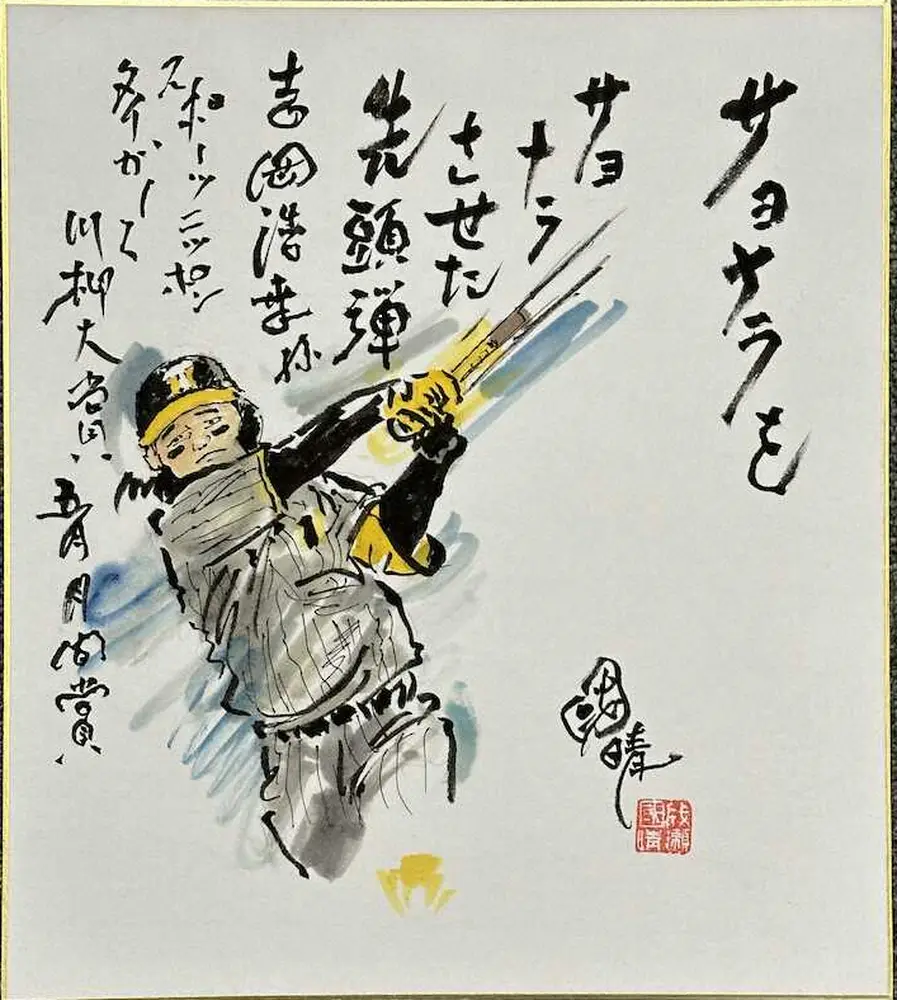 サヨナラを
サヨ
ナラ
させた
先頭弾
吉岡浩幸
スポーツニッポン
タイガース
川柳大賞五月月間賞
國晴